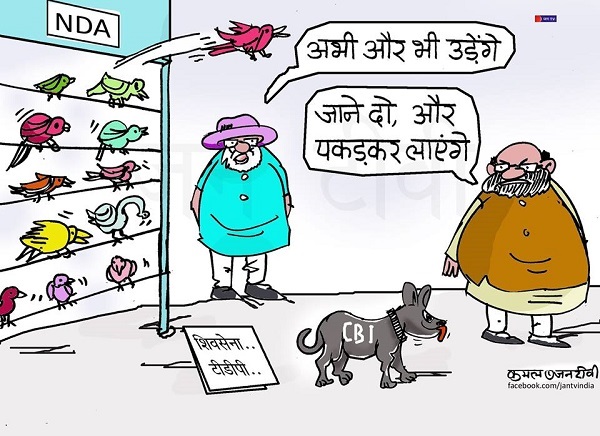 NDA
अभी और भी उड़ेंगे
जाने दो, और
पकड़कर लाएंगे
शिवसेना..
टीडीपी..
CBI
facebook.com/jantvindia